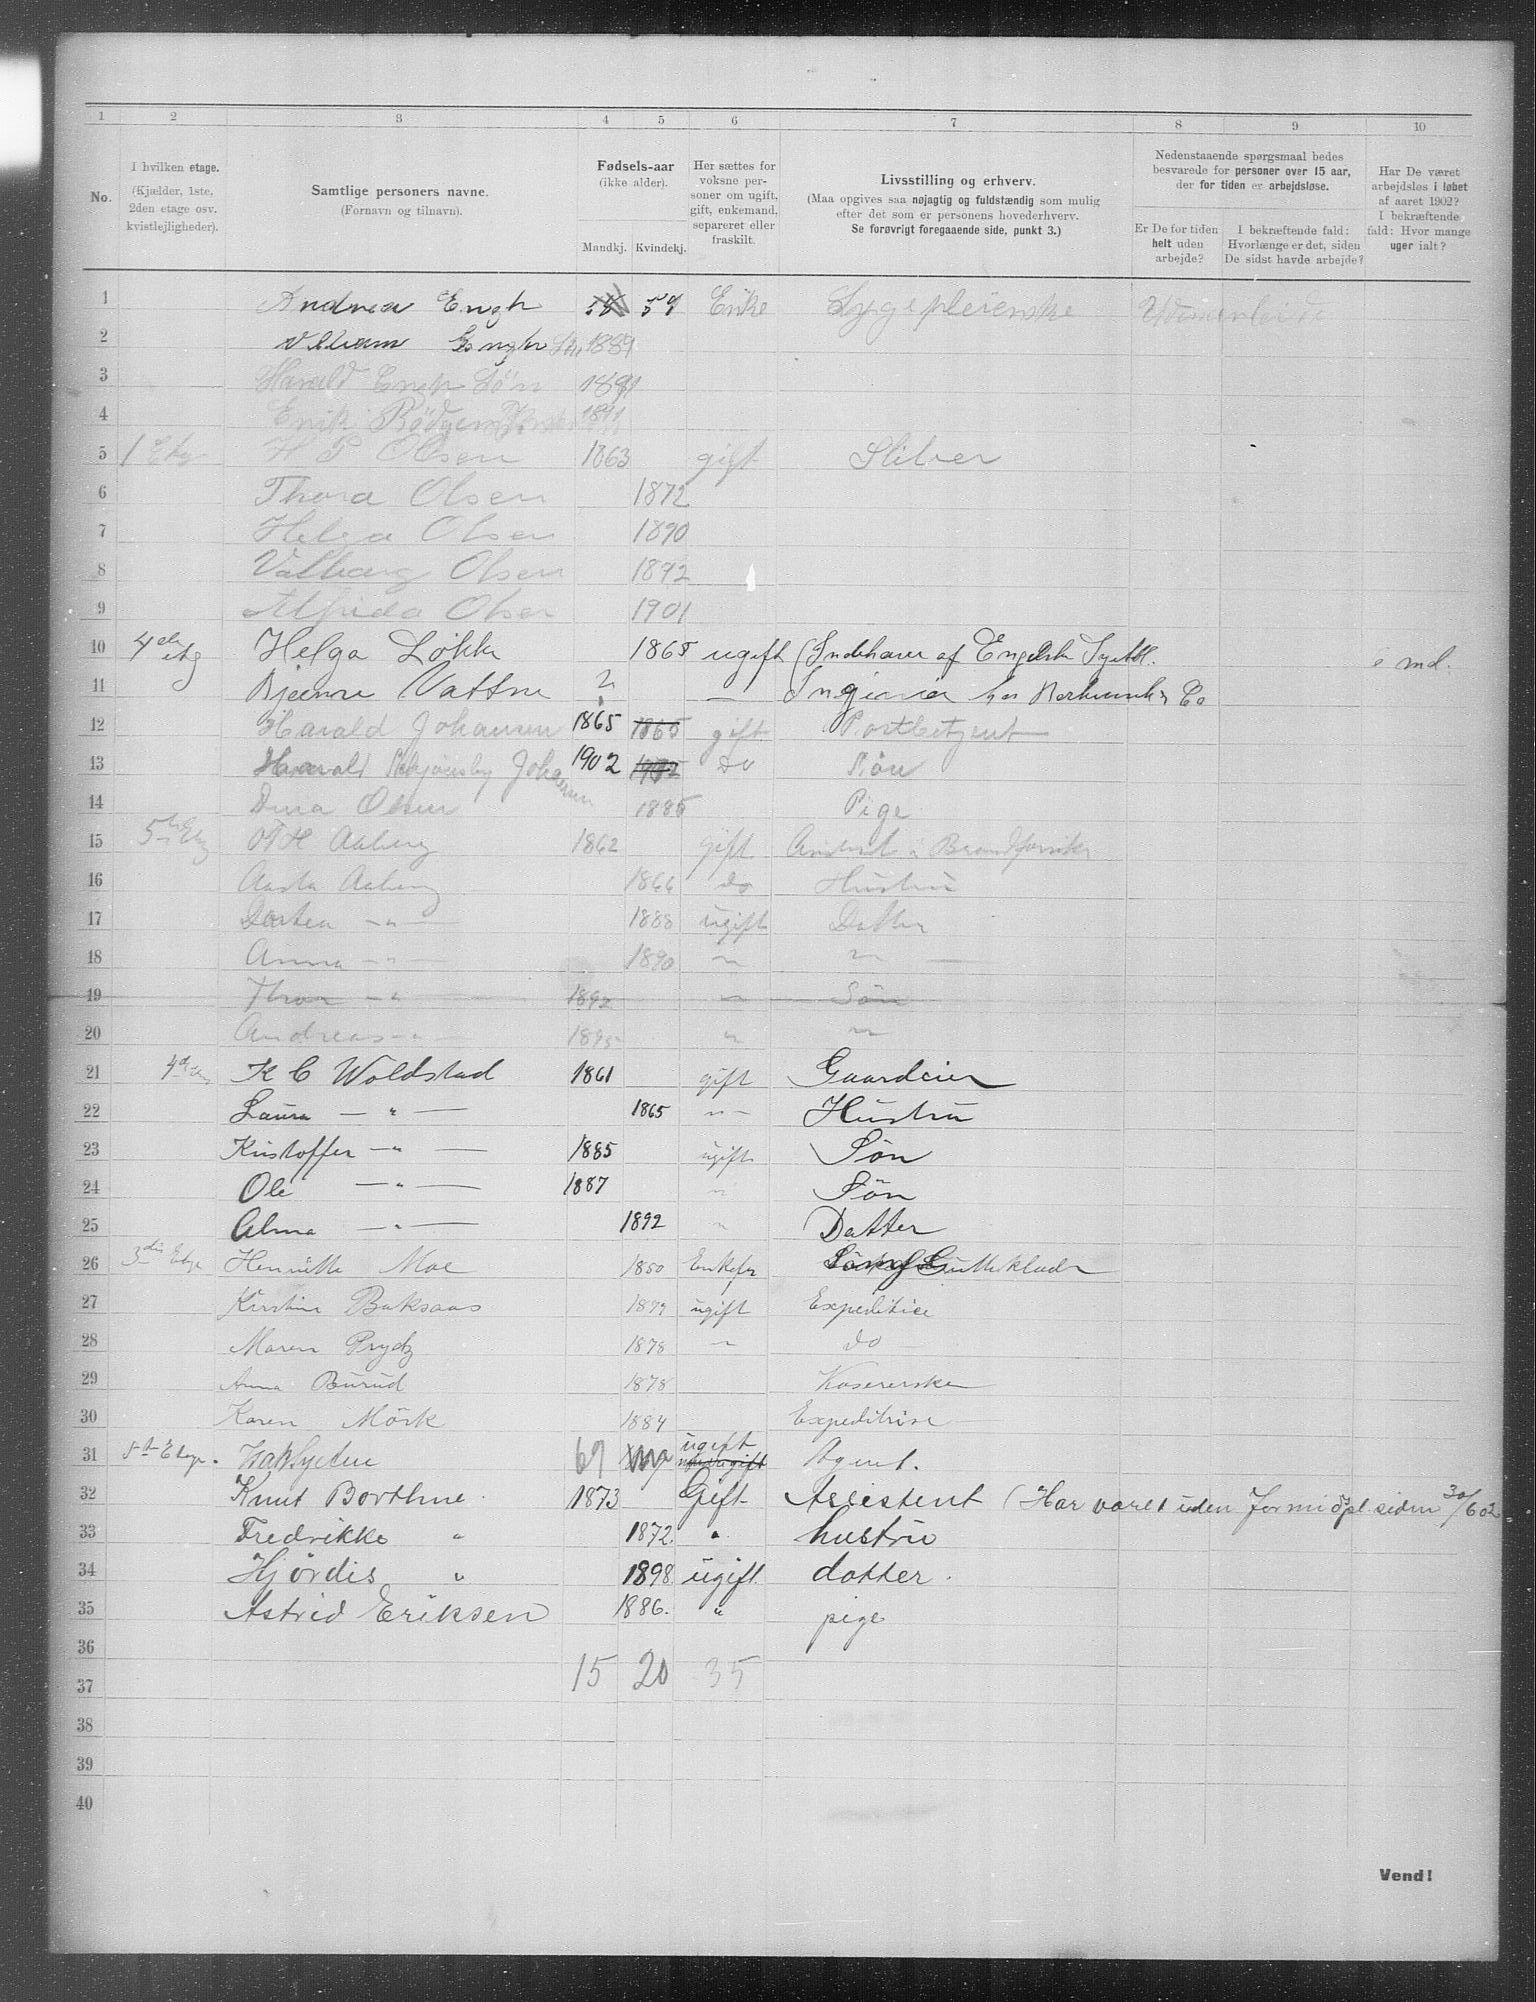 1 2 3 4 5 6 7 8 9 10
No.
I hvilken etage.
(Kjælder, 1ste,
2den etage osv.
kvistlejligheder).
Samtlige personers navne.
(Fornavn og tilnavn).
Fødsels-aar
(ikke alder).
Mandkj. Kvindekj.
Her sættes for
voksne per-
soner om ugift,
gift, enkemand,
separeret eller
fraskilt.
Livsstilling og erhverv.
(Maa opgives saa nøjagtig og fuldstændig som mulig
efter det som er personens hovederhverv.
Se forøvrigt foregaaende side, punkt 3.)
Nedenstaaende spørgsmaal bedes
besvarede for personer over 15 aar,
der for tiden er arbejdsløse.
Er De for tiden
helt uden
arbejde?
I bekræftende fald:
Hvorlænge er det, siden
De sidst havde arbejde?
Har De været
arbejdsløs i løbet
af aaret 1902?
I bekræftende
fald: Hvor mange
uger ialt?
1 Andrea Engh 59 Enke Sygepleierske
2 Engh 1889
3 Harald Engh Søn 1891
4 1891
5 1 Etg H P Olsen 1863 gift Sliber
6 Thora Olsen 1872
7 Helga Olsen 1890
8 Valborg Olsen 1892
9 Alfrida Olsen 1901
10 4de etg Helga Løkke 1865 ugift (Indehaver af Engelsk md.
11 Vattne — Ingeniør hos Co
12 Harald Johansen 1865 1865 gift Postbetjent
13 Harald Johansen 1902 1902 do Søn
14 Olsen 1885 Pige
15 5te Etg Aaberg 1862 gift
16 Aasta Aaberg 1866 do Hustru
17 Dortea —"— 1888 ugift Datter
18 Anna —"— 1890 " "
19 Thor —"— 1892 " Søn
20 Andreas —"— 1895 " "
21 4de K C Woldstad 1861 gift Gaardeier
22 Laura —"— 1865 " Hustru
23 Kristoffer —"— 1885 ugift Søn
24 Ole —"— 1887 " Søn
25 Alma —"— 1892 " Datter
26 3die Etge Henriette Moe 1850 Enkefr Gutteklæder
27 Kirstine Baksaas 1879 ugift Expeditrice
28 Maren Prydz 1878 " do
29 Anna Burud 1878 Kasererske
30 Karen Mörk 1884 Expeditrise
31 5te Etage. 69 ugift Agent.
32 Knut Borthne. 1873 Gift Assistent (Har været uden siden 30/6 02
33 Fredrikke " 1872. " hustru
34 Hjördis " 1898. ugift. datter.
35 Astrid Eriksen 1886. " pige
36
15 20 35
37
38
39
40
Vend!